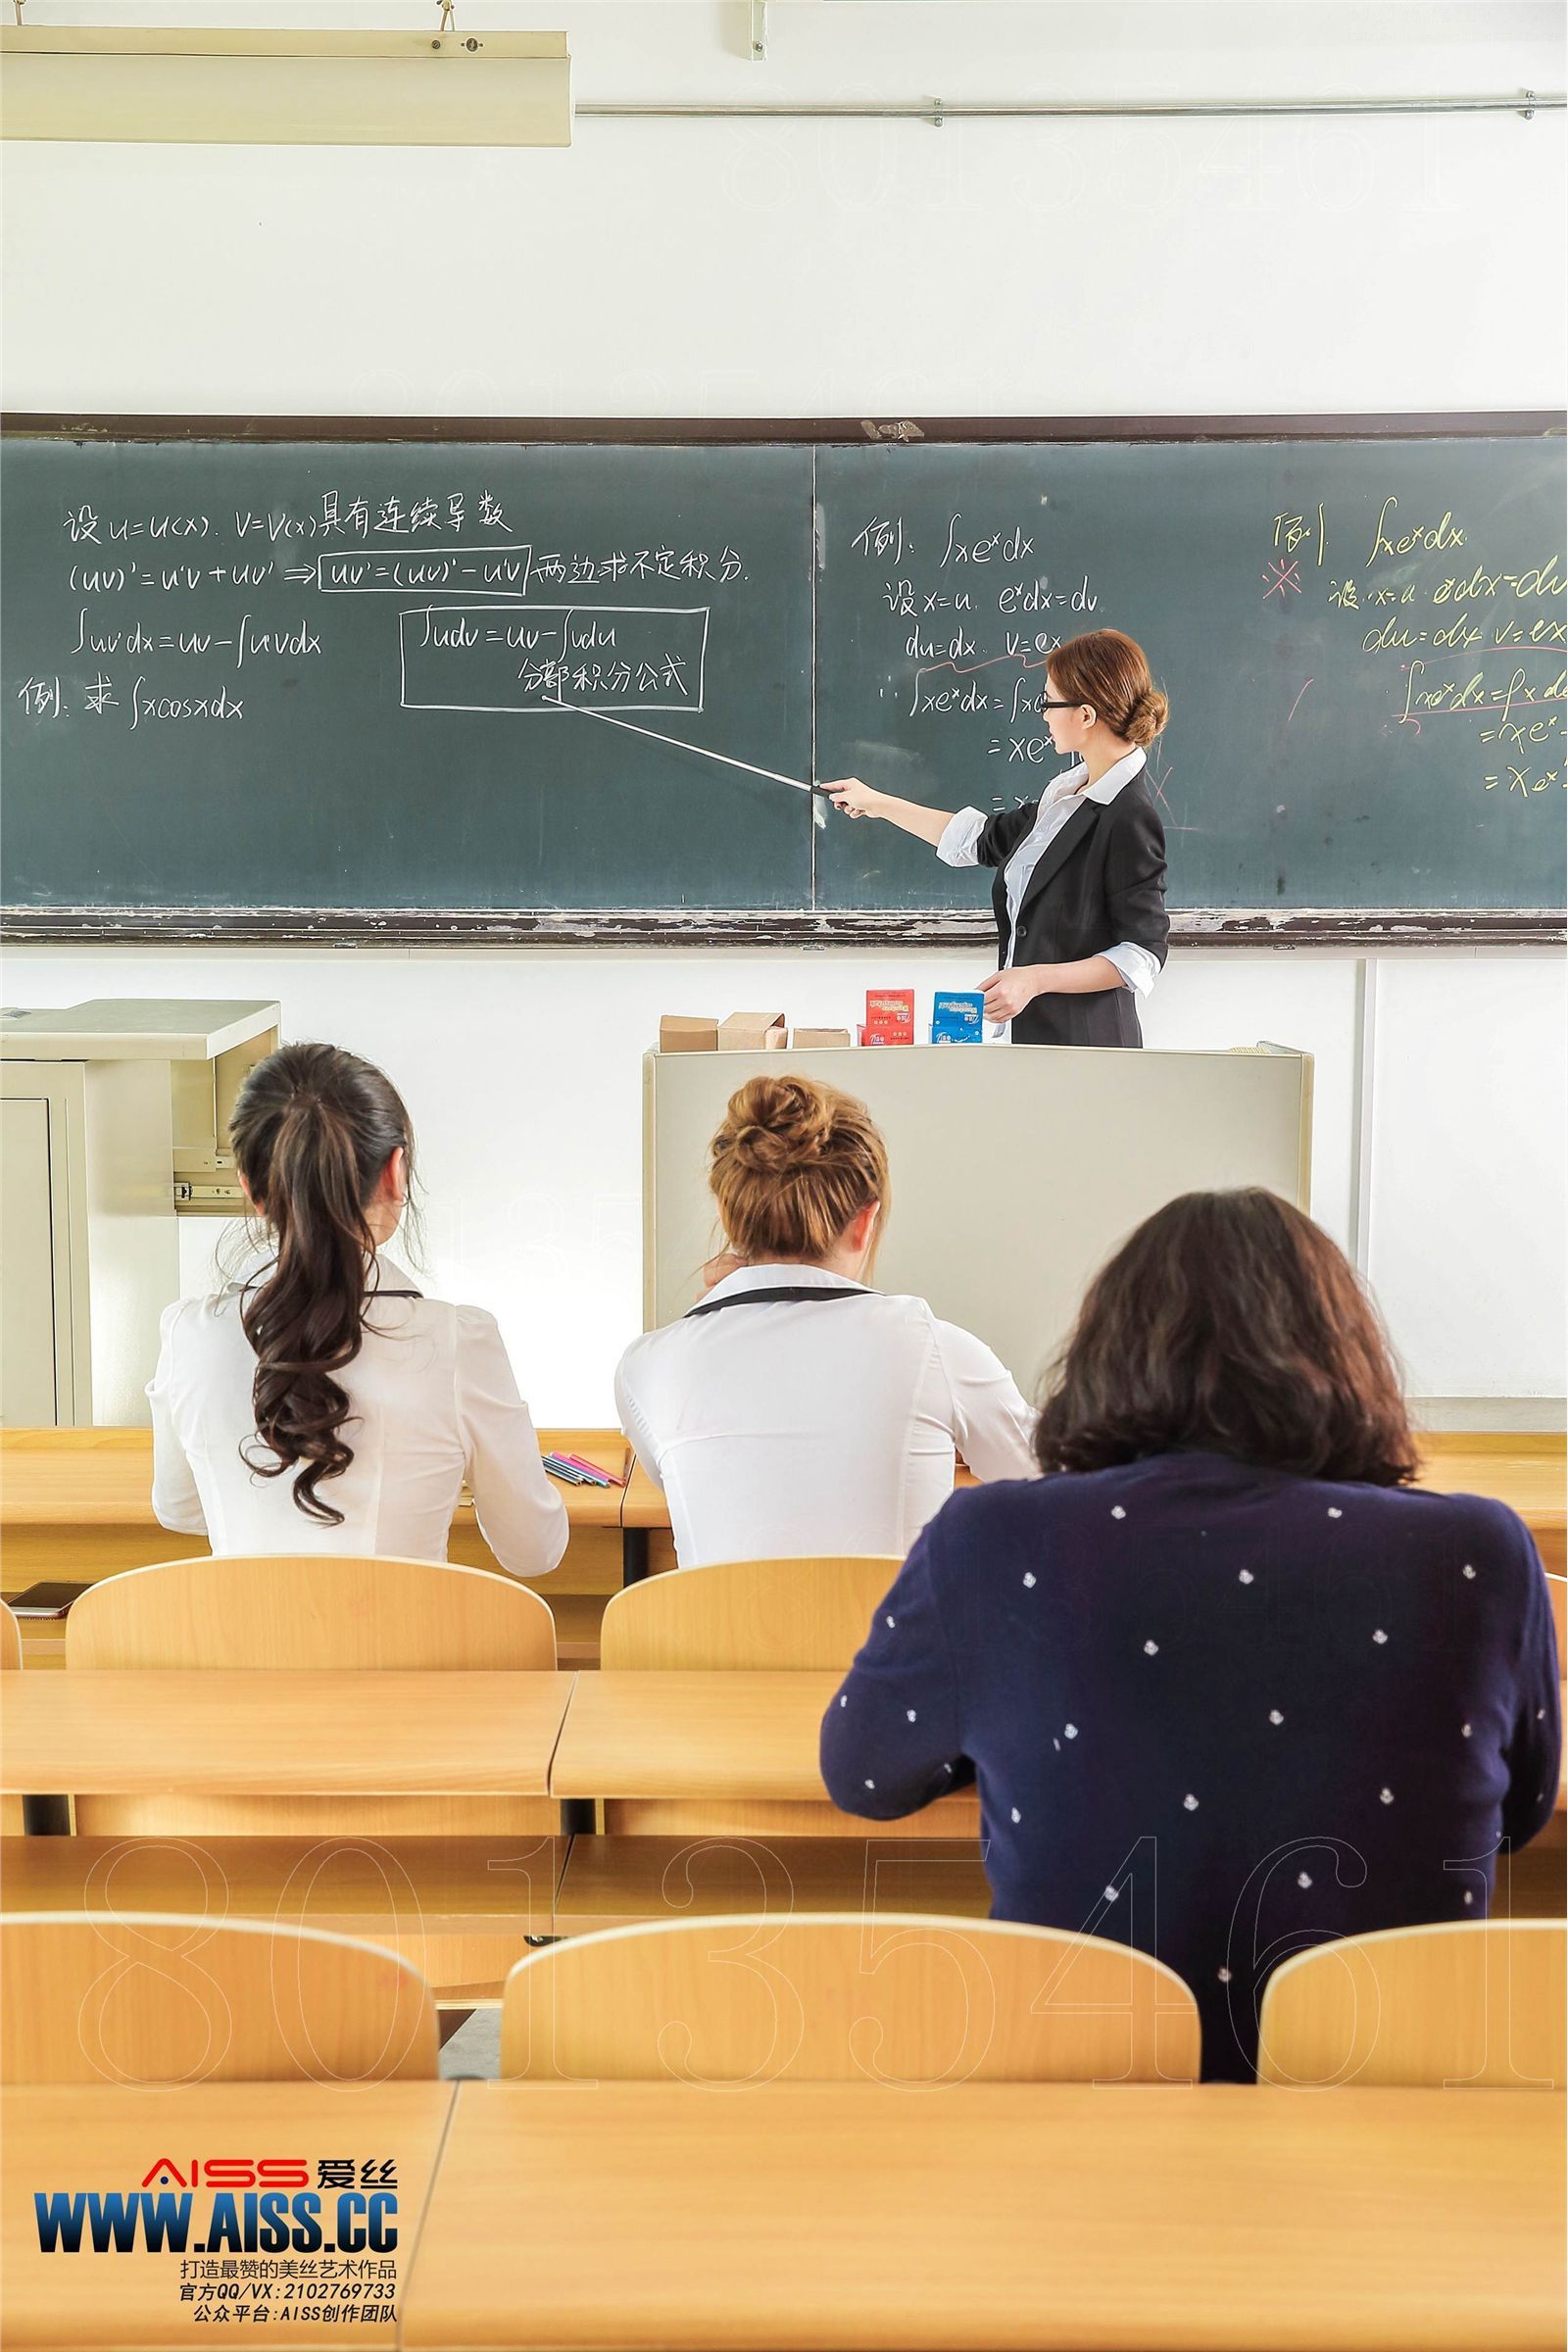 80135461
设 u=u(x). v=v(x)具有连续导数
(uv)'=u'v+uv' ⇒ uv'=(uv)'-u'v 两边求不定积分.
∫uv'dx=uv-∫u'vdx
∫udv=uv-∫vdu
分部积分公式
例: 求 ∫xcosxdx
例: ∫xeˣdx
设 x=u. eˣdx=dv
du=dx. v=ex
∴ ∫xeˣdx=∫x
=xeˣ
=x
例 ∫xeˣdx.
※ 设 x=u eˣdx=du
du=dx v=ex
∫xeˣdx=∫xd
=xeˣ-
=xeˣ-
80135461
AISS 爱丝
WWW.AISS.CC
打造最赞的美丝艺术作品
官方QQ/VX:2102769733
公众平台:AISS创作团队